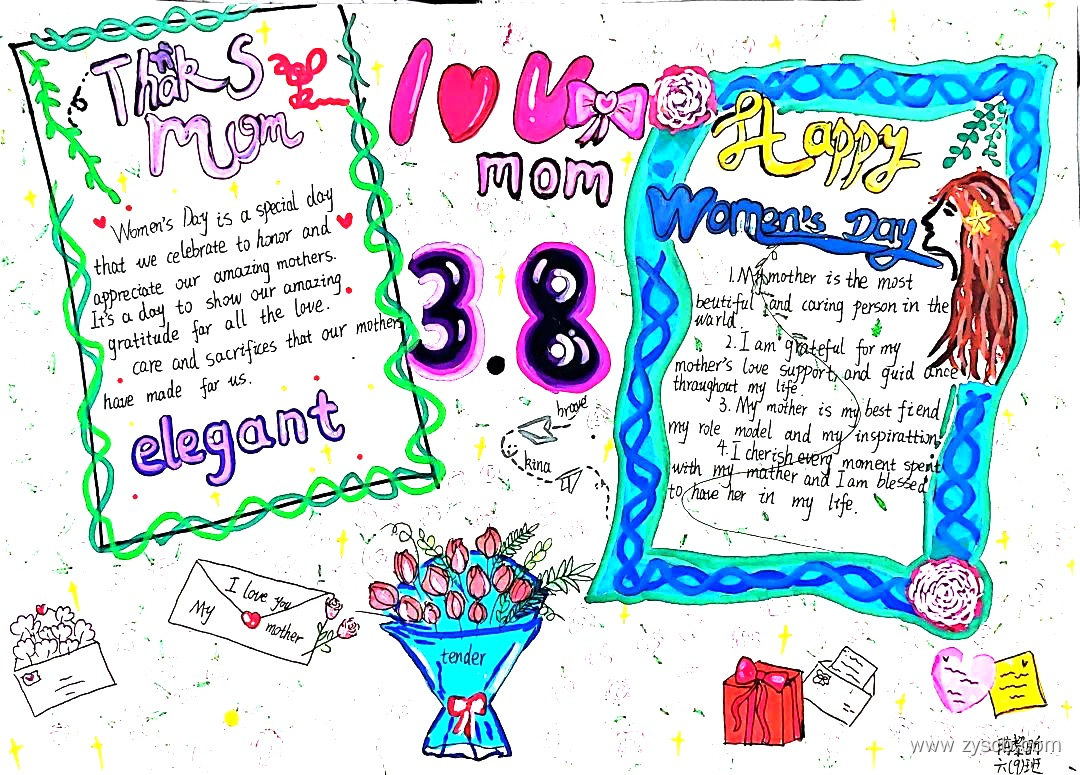 Thaks
Mom
Women's Day is a special day
that we celebrate to honor and
appreciate our amazing mothers.
It's a day to show our amazing
gratitude far all the love.
care and sacrifices that our mothers
have made far us.
elegant
I U
mom
3.8
brave
kina
Happy
Women's Day
1. My mother is the most
beutiful and caring person in the
world.
2. I am grateful for my
mother's love support, and guid ance
throughout my life
3. My mother is my best fiend
my role model and my inspirattion
4. I cherish every moment spent
with my mather and I am blessed
to have her in my life.
I love you
My mother
tender
六(9)班